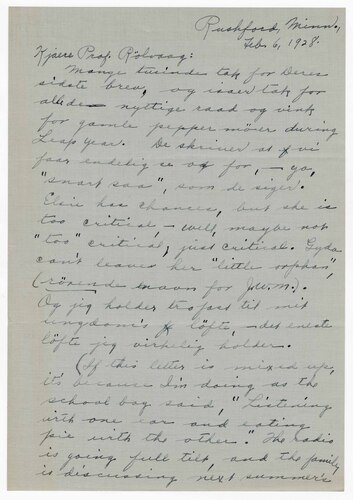 Rushford, Minn.,
Feb. 6, 1928.
Kjaere Prof. Rölvaag:
Mange tusinde tak for Deres
sidste brev, og isaer tak for
alle de nyttige raad og vink
for gamle pepper möer during
Leap year. De skriver at vi
faar endelig se op for, – ja,
"snart saa", som de siger.
Elsie has chances, but she is
too critical – well, maybe not
"too" critical; just critical. Gyda
can't leave her "little orphan",
(rörende navn for
Og jeg holder trofast til mit
ungdoms löfte, – det eneste
löfte jeg virkelig holder.
(If this letter is mixed up,
it's because I'm doing as the
school boy said, "Listening
with one ear and eating
pie with the other." The radio
is going full tilt, and the family
is discussing next summer's